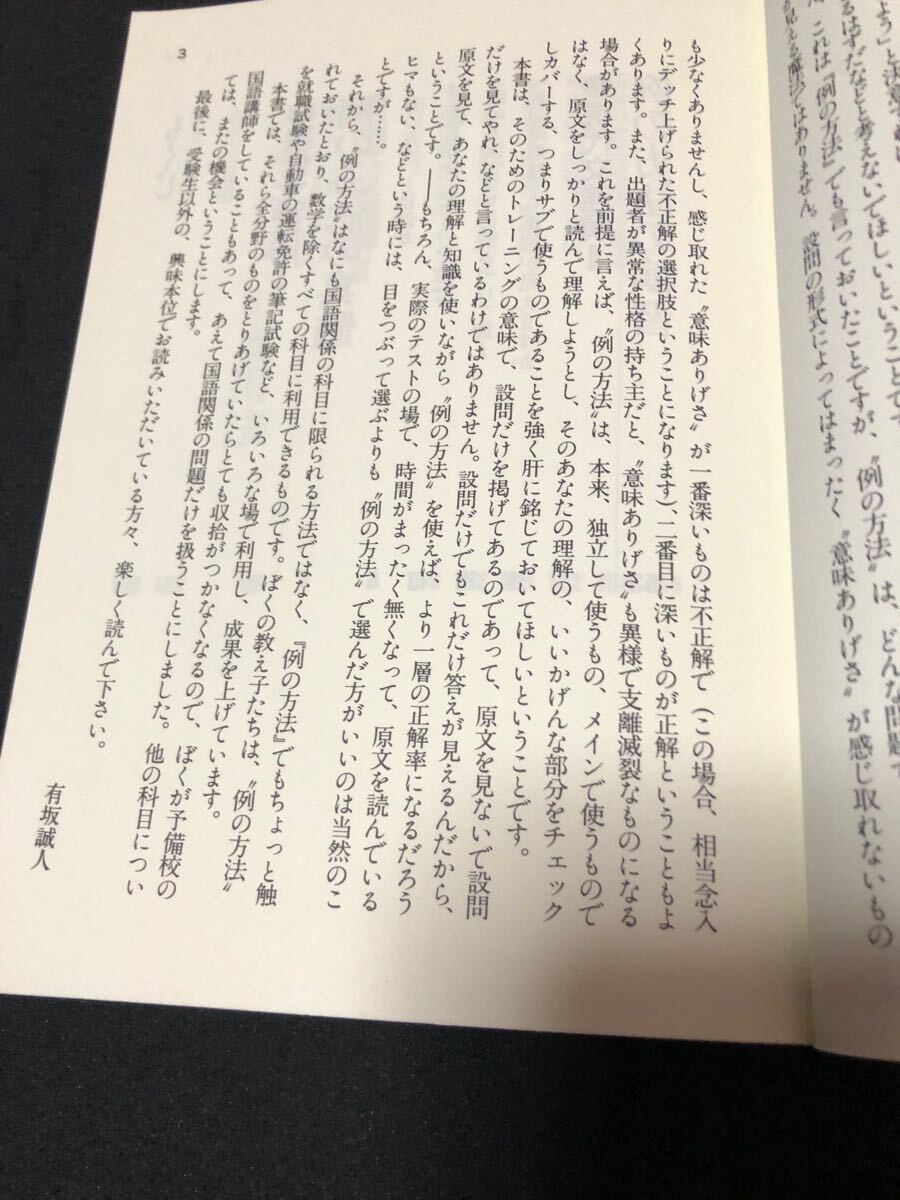 よう」と決意
るはずだなどと考えないでほしいということで
、これは『例の方法』でも言っておいたことですが、〝例の方法〟は、どんな問題で
見える魔法ではありません。設問の形式によってはまったく〝意味ありげさ〟が感じ取れないもの
も少なくありませんし、感じ取れた〝意味ありげさ〟が一番深いものは不正解で（この場合、相当念入
りにデッチ上げられた不正解の選択肢ということになります）、二番目に深いものが正解ということもよ
くあります。また、出題者が異常な性格の持ち主だと、〝意味ありげさ〟も異様で支離滅裂なものになる
場合があります。これを前提に言えば、〝例の方法〟は、本来、独立して使うもの、メインで使うもので
はなく、原文をしっかりと読んで理解しようとし、そのあなたの理解の、いいかげんな部分をチェック
しカバーする、つまりサブで使うものであることを強く肝に銘じておいてほしいということです。
本書は、そのためのトレーニングの意味で、設問だけを掲げてあるのであって、原文を見ないで設問
だけを見てやれ、などと言っているわけではありません。設問だけでもこれだけ答えが見えるんだから、
原文を見て、あなたの理解と知識を使いながら〝例の方法〟を使えば、より一層の正解率になるだろう
ということです。――もちろん、実際のテストの場で、時間がまったく無くなって、原文を読んでいる
ヒマもない、などという時には、目をつぶって選ぶよりも〝例の方法〟で選んだ方がいいのは当然のこ
とですが……。
それから、〝例の方法〟はなにも国語関係の科目に限られる方法ではなく、『例の方法』でもちょっと触
れておいたとおり、数学を除くすべての科目に利用できるものです。ぼくの教え子たちは、〝例の方法〟
を就職試験や自動車の運転免許の筆記試験など、いろいろな場で利用し、成果を上げています。
本書では、それら全分野のものをとりあげていたらとても収拾がつかなくなるので、ぼくが予備校の
国語講師をしていることもあって、あえて国語関係の問題だけを扱うことにしました。他の科目につい
ては、またの機会ということにします。
最後に、受験生以外の、興味本位でお読みいただいている方々、楽しく読んで下さい。
有坂誠人
3